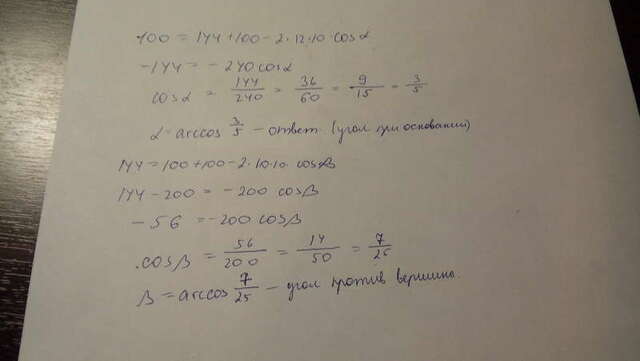 100 = 144 + 100 - 2·12·10·cosα
-144 = -240 cosα
cosα = 144/240 = 36/60 = 9/15 = 3/5
α - arccos 3/5 - ответ. (угол при основании)
144 = 100 + 100 - 2·10·10·cosβ
144 - 200 = -200 cosβ
-56 = -200 cosβ
cosβ = 56/200 = 14/50 = 7/25
β = arccos 7/25 - угол против вершины.